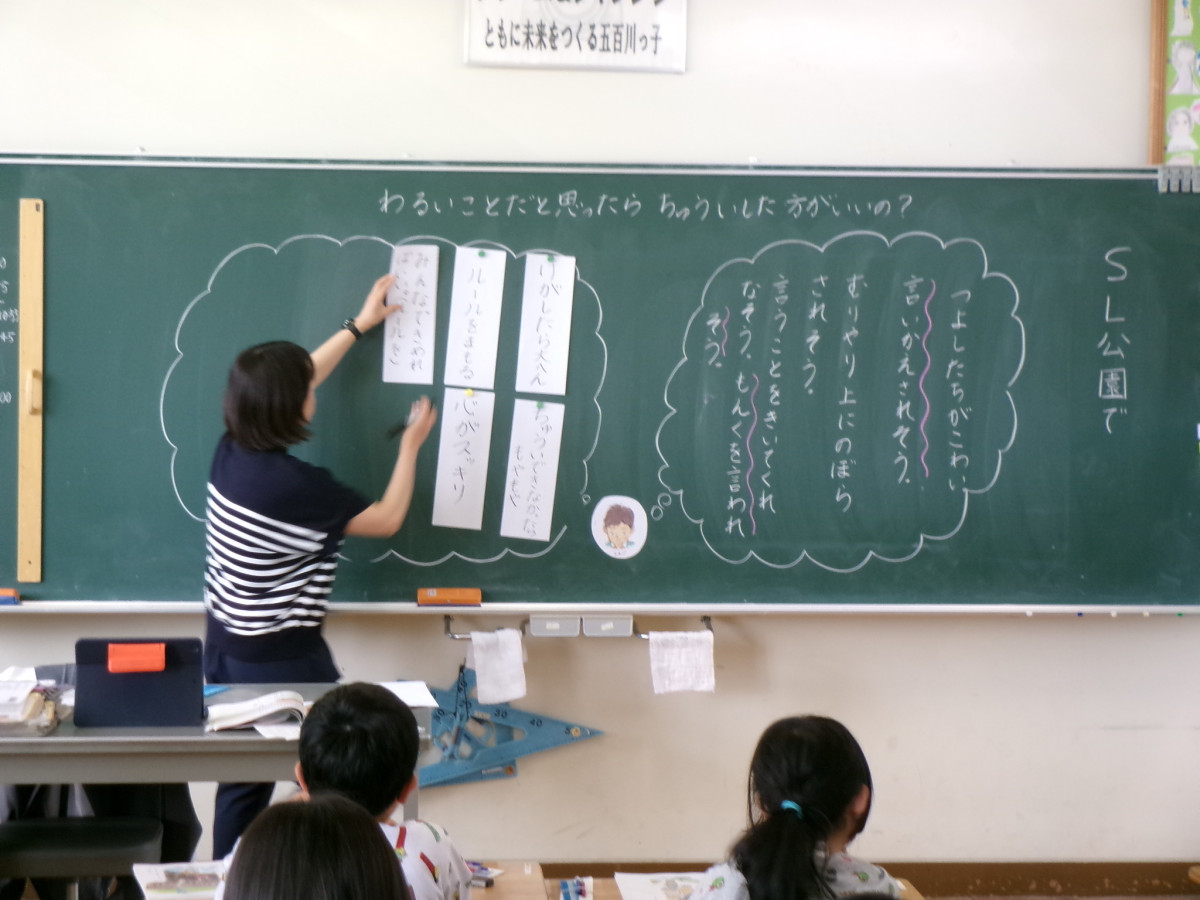 ともに未来をつくる五百川っ子
わるいことだと思ったら ちゅういした方がいいの？
ＳＬ公園で
つよしたちがこわい
言いかえされそう。
むりやり上にのぼら
されそう。
言うことをきいてくれ
なそう、もんくを言われ
そう。
けがしたら大へん
ちゅういできなかったら
もやもや
ルールをまもる
心がスッキリ
みんなできめた
ルールを